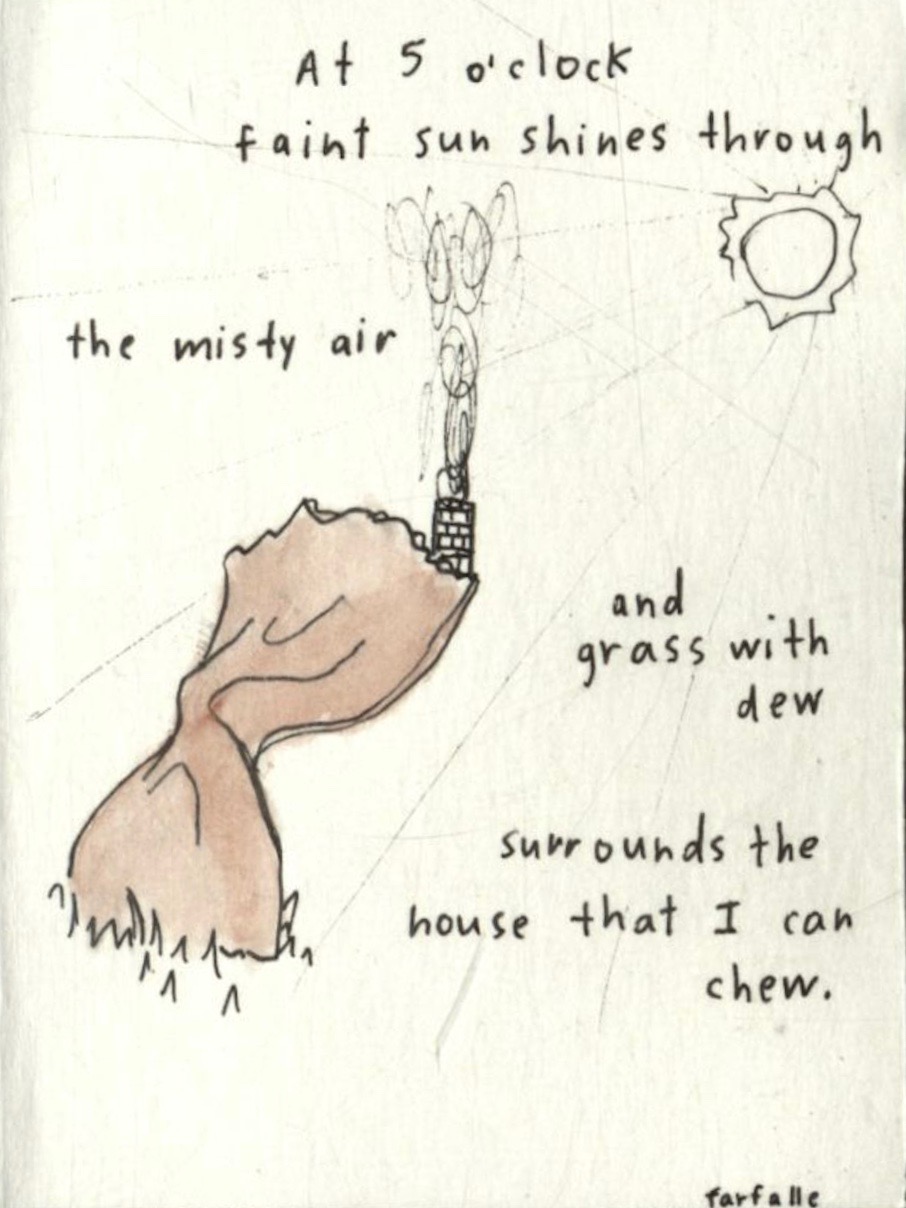 At 5 o'clock
faint sun shines through
the misty air
and
grass with
dew
surrounds the
house that I can
chew.
farfalle